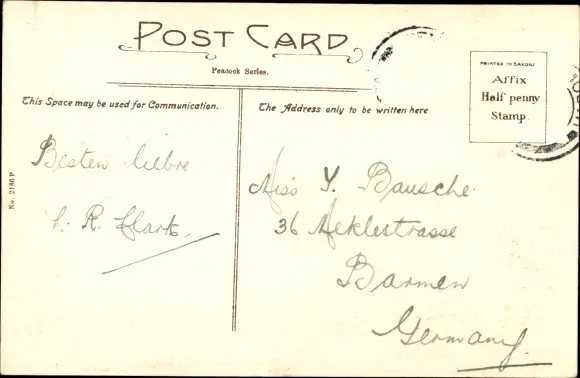 POST CARD
Peacock Series.
This Space may be used for Communication.
The Address only to be written here
PRINTED IN SAXONY
Affix
Half penny
Stamp.
No. 2186 P
Besten
R. Clark.
Miss Y. Bausche
36 Meklestrasse
Barmen
Germany.